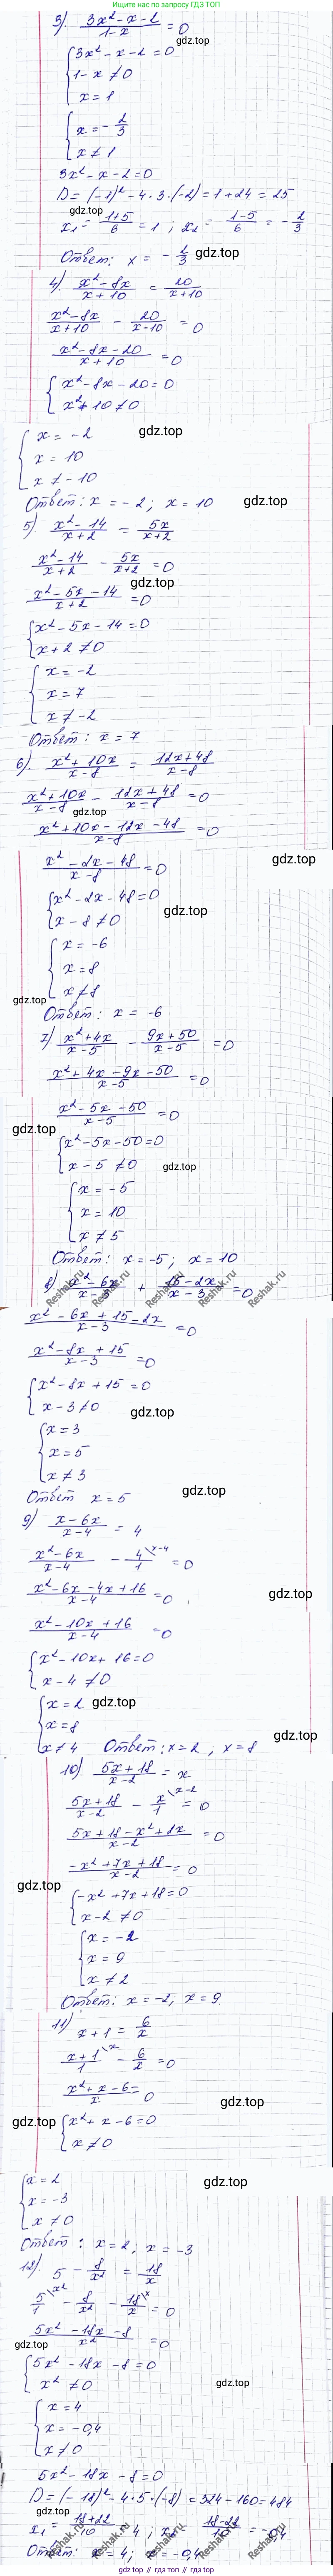 Ищите ответы на запросу ГДЗ ТОП
3). (3x² - x - 2)/(1 - x) = 0
gdz.top
{ 3x² - x - 2 = 0
1 - x ≠ 0
x = 1
{ x = - 2/3
x ≠ 1
3x² - x - 2 = 0
D = (-1)² - 4 · 3 · (-2) = 1 + 24 = 25
gdz.top
x₁ = (1+5)/6 = 1 ; x₂ = (1-5)/6 = - 2/3
Ответ: x = - 2/3
gdz.top
4). (x² - 8x)/(x + 10) = 20/(x + 10)
(x² - 8x)/(x + 10) - 20/(x - 10) = 0
(x² - 8x - 20)/(x + 10) = 0
{ x² - 8x - 20 = 0
x + 10 ≠ 0
{ x = -2
gdz.top
x = 10
x ≠ -10
Ответ: x = -2; x = 10
gdz.top
5) (x² - 14)/(x + 2) = 5x/(x + 2)
(x² - 14)/(x + 2) - 5x/(x + 2) = 0
gdz.top
(x² - 5x - 14)/(x + 2) = 0
{ x² - 5x - 14 = 0
x + 2 ≠ 0
{ x = -2
x = 7
x ≠ -2
Ответ: x = 7
6). (x² + 10x)/(x - 8) = (12x + 48)/(x - 8)
(x² + 10x)/(x - 8) - (12x + 48)/(x - 8) = 0
gdz.top
(x² + 10x - 12x - 48)/(x - 8) = 0
(x² - 2x - 48)/(x - 8) = 0
gdz.top
{ x² - 2x - 48 = 0
x - 8 ≠ 0
gdz.top
{ x = -6
x = 8
x ≠ 8
gdz.top
Ответ: x = -6
7) (x² + 4x)/(x - 5) - (9x + 50)/(x - 5) = 0
(x² + 4x - 9x - 50)/(x - 5) = 0
(x² - 5x - 50)/(x - 5) = 0
gdz.top
{ x² - 5x - 50 = 0
x - 5 ≠ 0
gdz.top
{ x = -5
x = 10
x ≠ 5
Ответ: x = -5; x = 10
8) (x² - 6x)/(x - 3) + (15 - 2x)/(x - 3) = 0
Reshak.ru Reshak.ru Reshak.ru Reshak.ru Reshak.ru
(x² - 6x + 15 - 2x)/(x - 3) = 0
(x² - 8x + 15)/(x - 3) = 0
{ x² - 8x + 15 = 0
x - 3 ≠ 0
gdz.top
{ x = 3
x = 5
x ≠ 3
Ответ x = 5
gdz.top
9) (x - 6x)/(x - 4) = 4
(x² - 6x)/(x - 4) - 4/1 \x-4 = 0
(x² - 6x - 4x + 16)/(x - 4) = 0
gdz.top
(x² - 10x + 16)/(x - 4) = 0
{ x² - 10x + 16 = 0
x - 4 ≠ 0
{ x = 2
gdz.top
x = 8
x ≠ 4 Ответ: x = 2 , x = 8
gdz.top
10) (5x + 18)/(x - 2) = x
(5x + 18)/(x - 2) - x/1 \x-2 = 0
(5x + 18 - x² + 2x)/(x - 2) = 0
(-x² + 7x + 18)/(x - 2) = 0
gdz.top
{ -x² + 7x + 18 = 0
x - 2 ≠ 0
{ x = -2
x = 9
x ≠ 2
Ответ: x = -2; x = 9
11) x + 1 = 6/x
(x + 1)/1 \x - 6/x = 0
(x² + x - 6)/x = 0
gdz.top
gdz.top
{ x² + x - 6 = 0
x ≠ 0
{ x = 2
gdz.top
x = -3
x ≠ 0
Ответ: x = 2; x = -3
12). 5 - 8/x² = 18/x
5/1 \x² - 8/x² - 18/x \x = 0
(5x² - 18x - 8)/x² = 0
gdz.top
{ 5x² - 18x - 8 = 0
x² ≠ 0
gdz.top
{ x = 4
x = -0,4
x ≠ 0
5x² - 18x - 8 = 0
D = (-18)² - 4 · 5 · (-8) = 324 - 160 = 484
gdz.top
x₁ = (18+22)/10 = 4 ; x₂ = (18-22)/10 = -0,4
Ответ: x = 4; x = -0,4
gdz.top // гдз.топ // ГДЗ ТОП